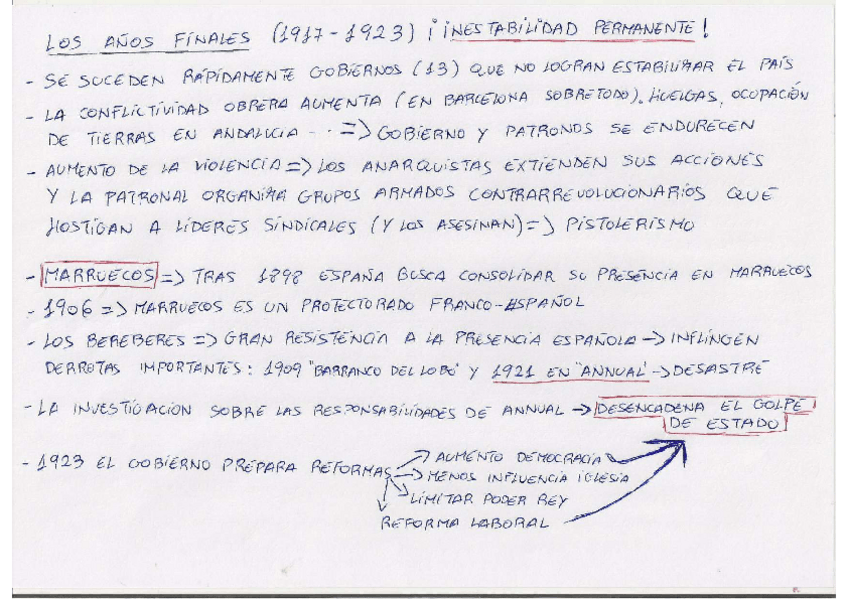 LOS AÑOS FINALES (1917-1923) ¡ INESTABILIDAD PERMANENTE !
- SE SUCEDEN RÁPIDAMENTE GOBIERNOS (13) QUE NO LOGRAN ESTABILIZAR EL PAÍS
- LA CONFLICTIVIDAD OBRERA AUMENTA (EN BARCELONA SOBRE TODO). HUELGAS, OCUPACIÓN
DE TIERRAS EN ANDALUCIA ... => GOBIERNO Y PATRONOS SE ENDURECEN
- AUMENTO DE LA VIOLENCIA => LOS ANARQUISTAS EXTIENDEN SUS ACCIONES
Y LA PATRONAL ORGANIZA GRUPOS ARMADOS CONTRARREVOLUCIONARIOS QUE
HOSTIGAN A LÍDERES SINDICALES (Y LOS ASESINAN) => PISTOLERISMO
- MARRUECOS => TRAS 1898 ESPAÑA BUSCA CONSOLIDAR SU PRESENCIA EN MARRUECOS
- 1906 => MARRUECOS ES UN PROTECTORADO FRANCO-ESPAÑOL
- LOS BEREBERES => GRAN RESISTENCIA A LA PRESENCIA ESPAÑOLA -> INFLINGEN
DERROTAS IMPORTANTES: 1909 "BARRANCO DEL LOBO" Y 1921 EN "ANNUAL" -> DESASTRE
- LA INVESTIGACIÓN SOBRE LAS RESPONSABILIDADES DE ANNUAL -> DESENCADENA EL GOLPE
DE ESTADO
- 1923 EL GOBIERNO PREPARA REFORMAS -> AUMENTO DEMOCRACIA
-> MENOS INFLUENCIA IGLESIA
LIMITAR PODER REY
REFORMA LABORAL